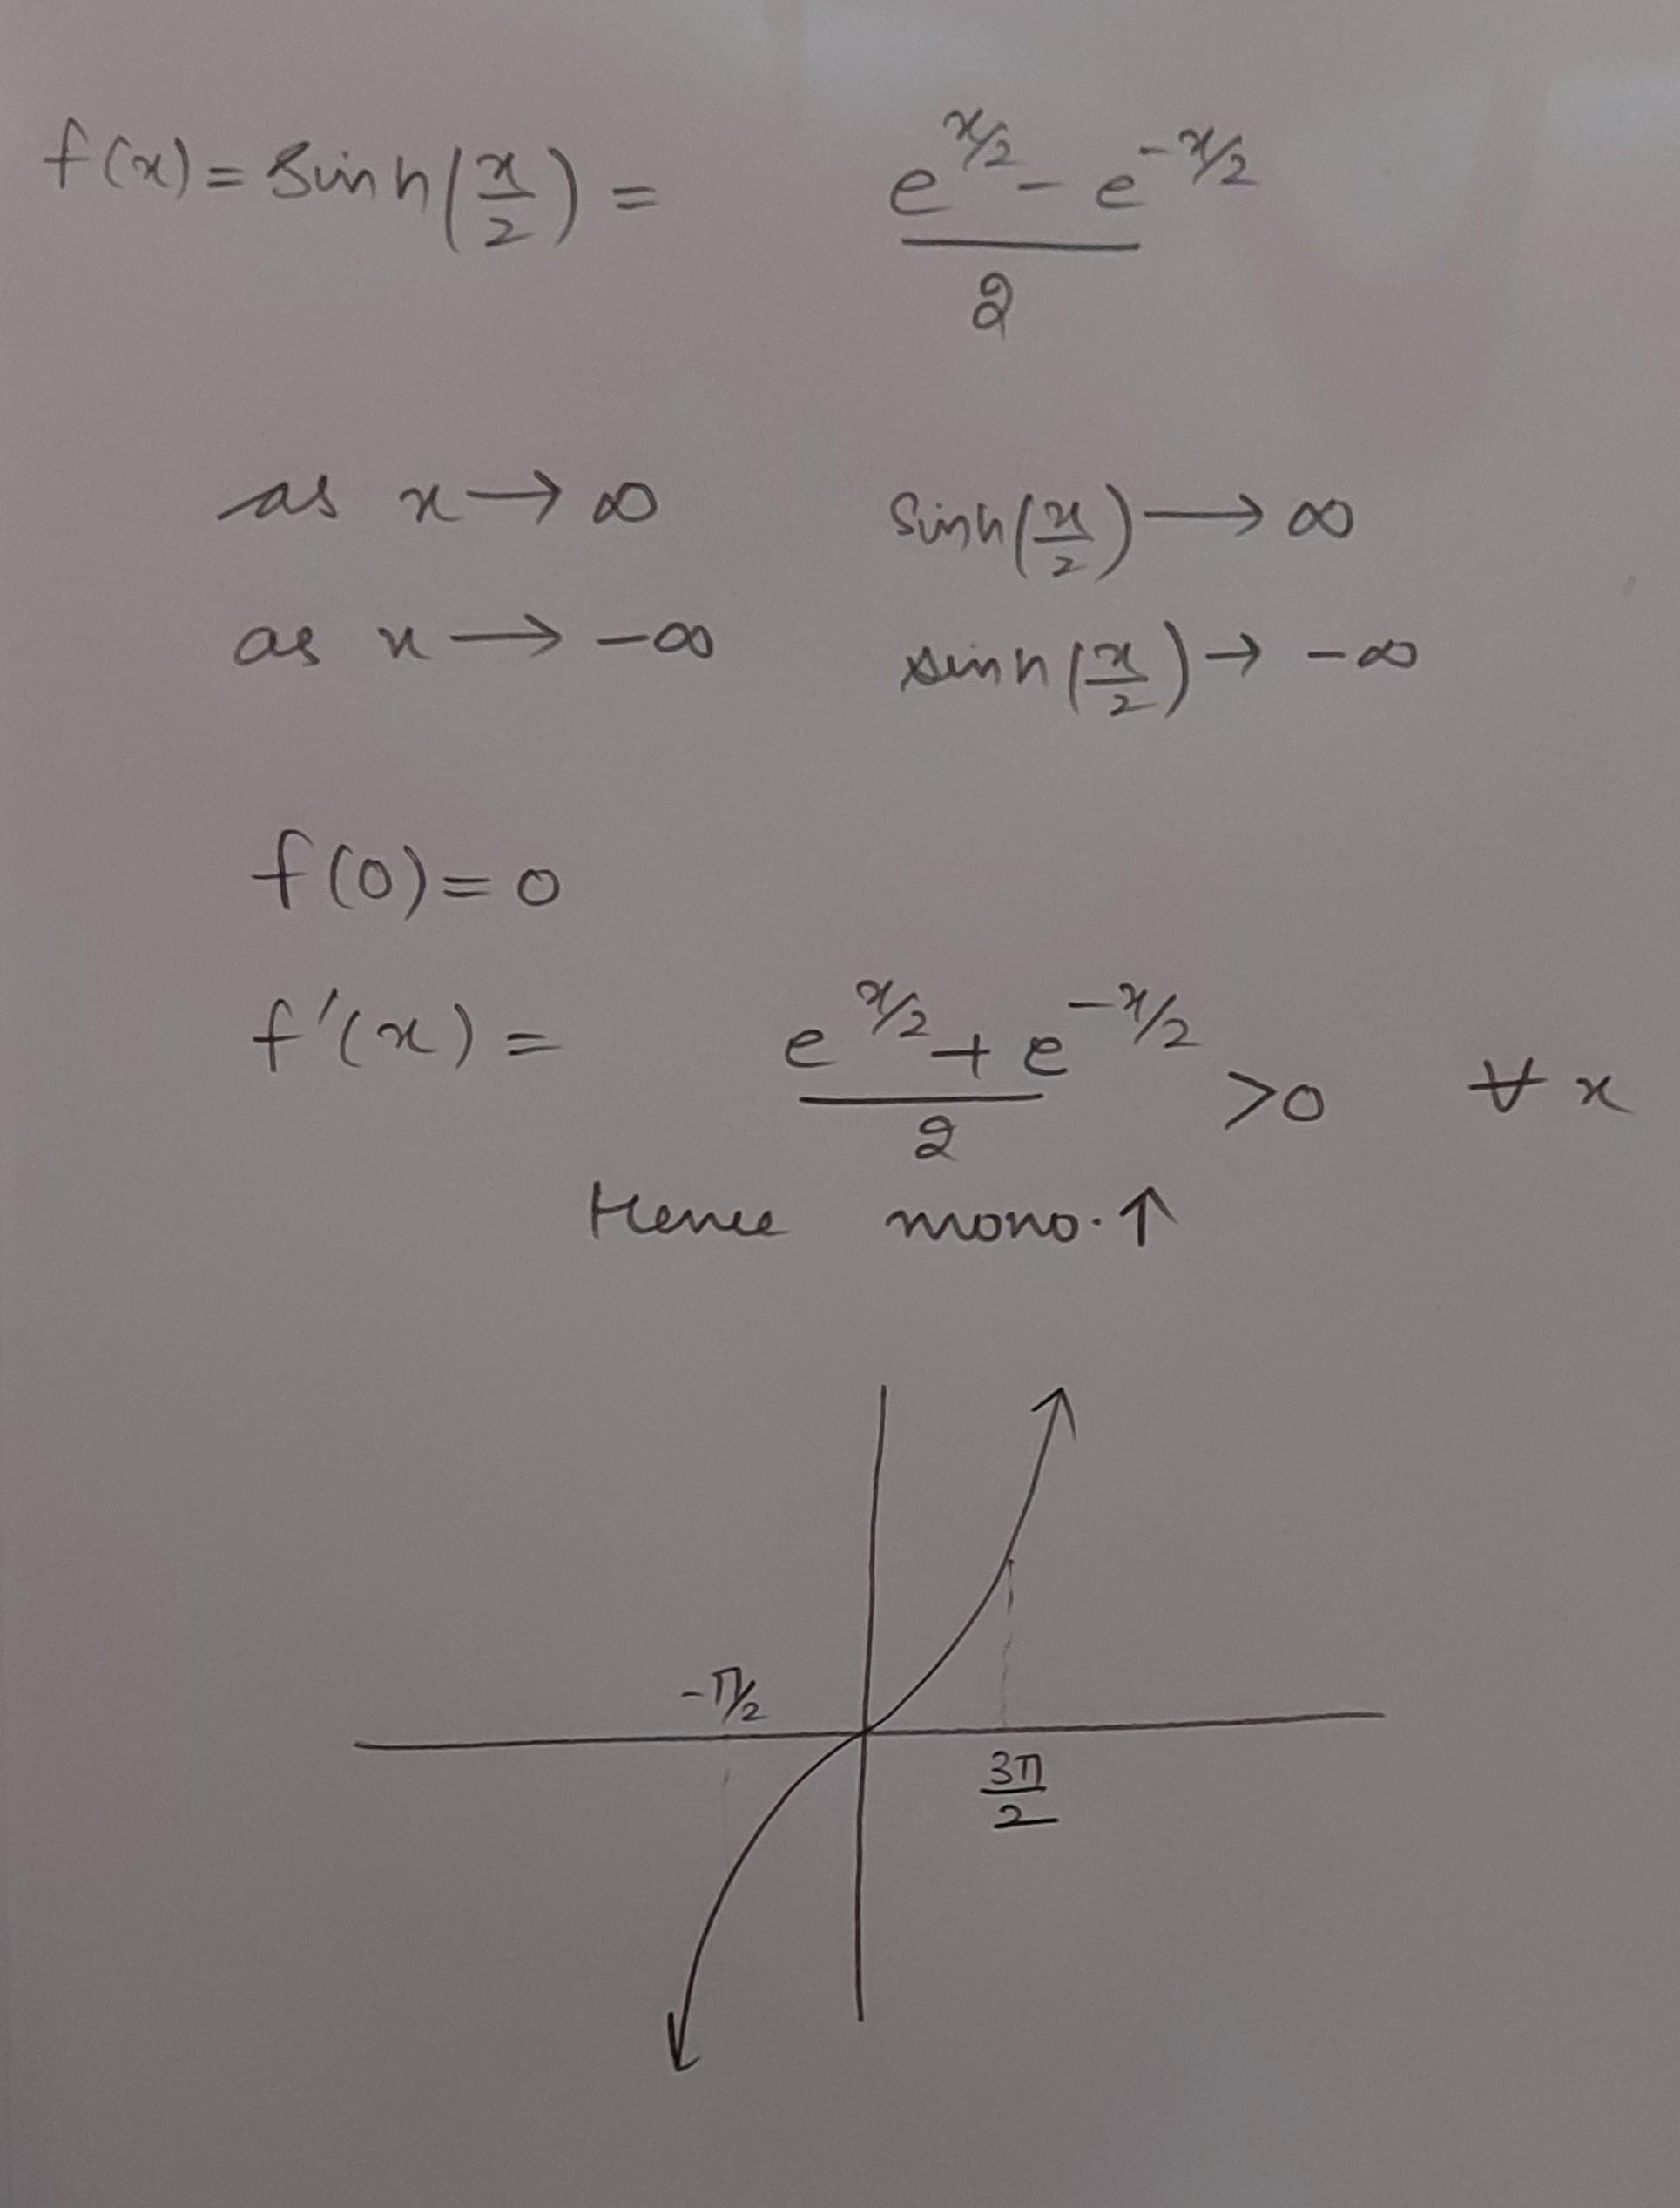 f(x) = Sinh(x/2) = (e^{x/2} - e^{-x/2})/2
as x → ∞ Sinh(x/2) → ∞
as x → -∞ sinh(x/2) → -∞
f(0) = 0
f'(x) = (e^{x/2} + e^{-x/2})/2 >0 ∀ x
Hence mono. ↑
-π/2
3π/2